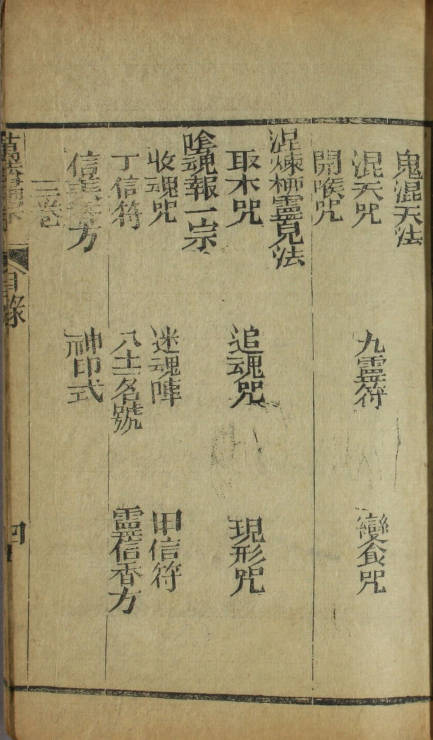 鬼混天法
混天咒 九靈符 變食咒
開喉咒
涅煉柳靈見法
取木咒 追魂咒 現形咒
魂報一宗
收魂咒 迷魂陣 甲信符
丁信符 八士名號 靈信香方
信香方 神印式
三卷
目錄 四